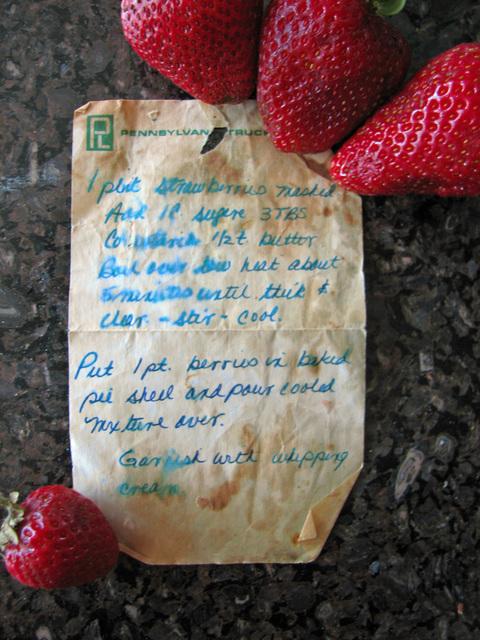 PL PENNSYLVAN TRUCK
1 pint strawberries mashed
Add 1C. sugar 3TBS
Cornstarch 1/2t. butter
Boil over low heat about
5 minutes until thick &
clear. - stir - cool.
Put 1pt. berries in baked
pie shell and pour cooled
mixture over.
Garnish with whipping
cream.